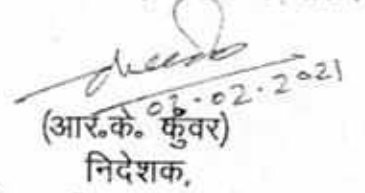 02.02.2021
(आर.के. कुँवर)
निदेशक,